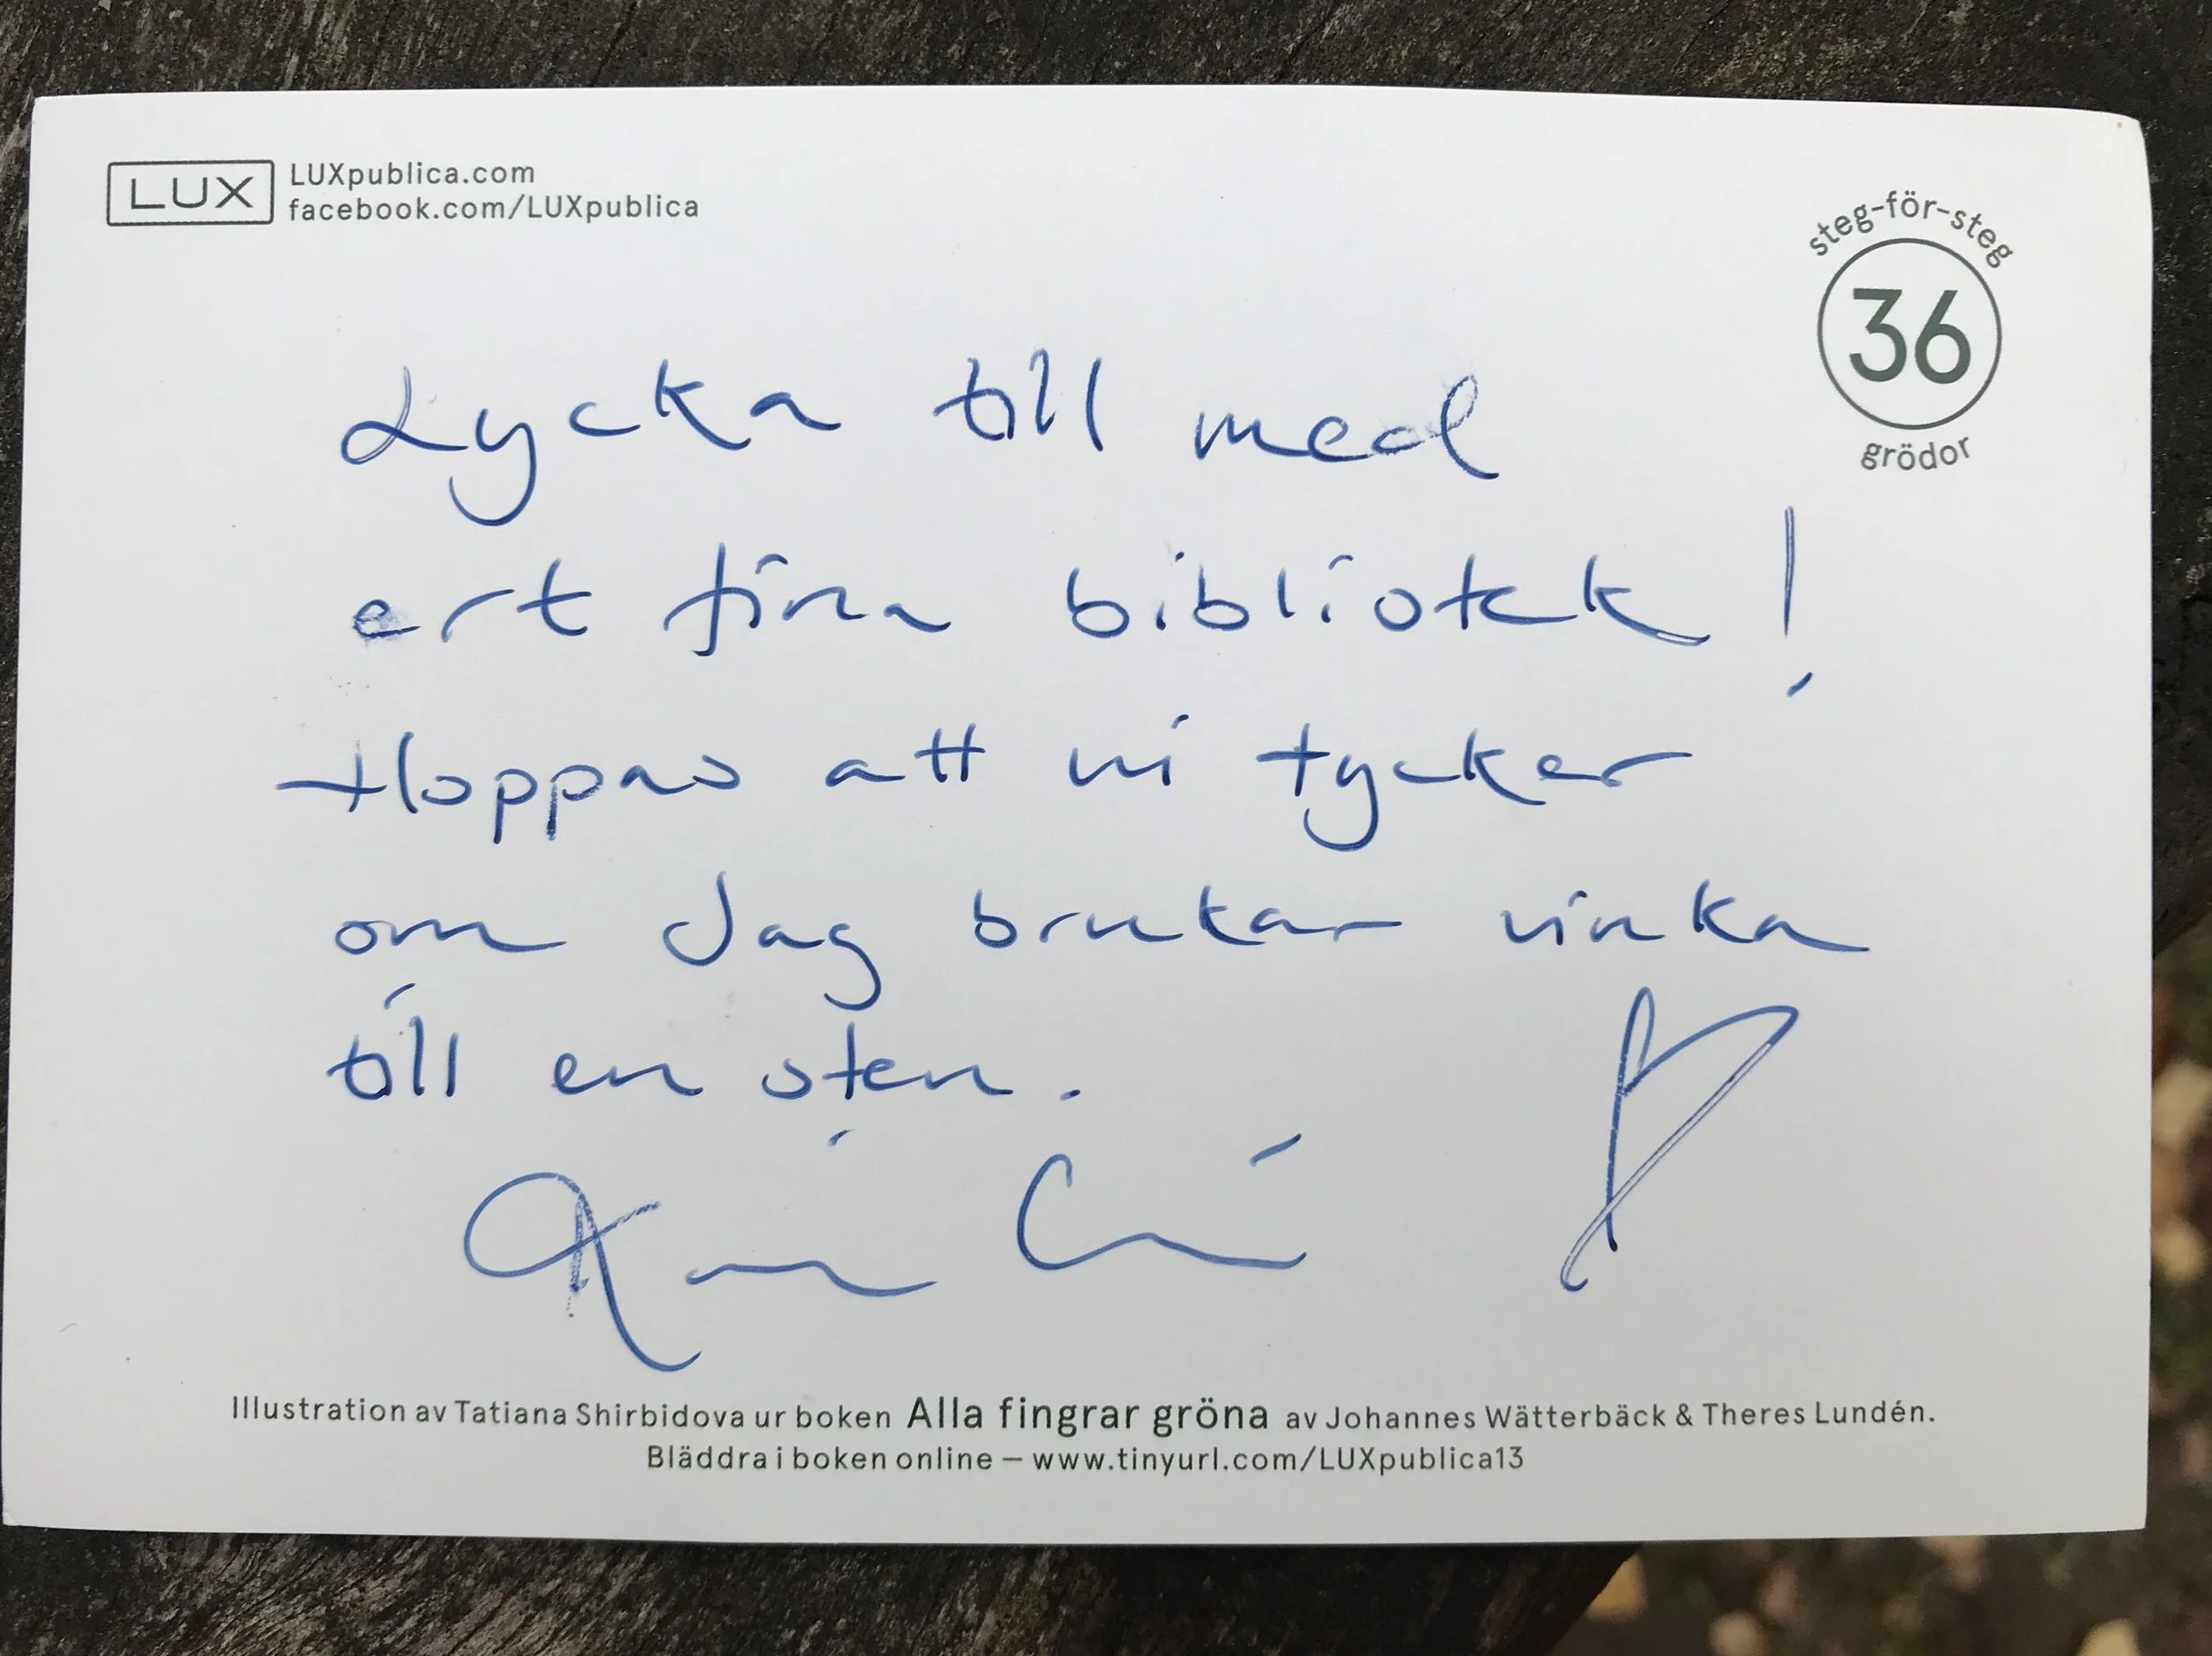 LUX
LUXpublica.com
facebook.com/LUXpublica
steg-för-steg
36
grödor
Lycka till med
ert fina bibliotek!
Hoppas att ni tycker
om Jag brukar vinka
till en sten.
Illustration av Tatiana Shirbidova ur boken Alla fingrar gröna av Johannes Wätterbäck & Theres Lundén.
Bläddra i boken online – www.tinyurl.com/LUXpublica13